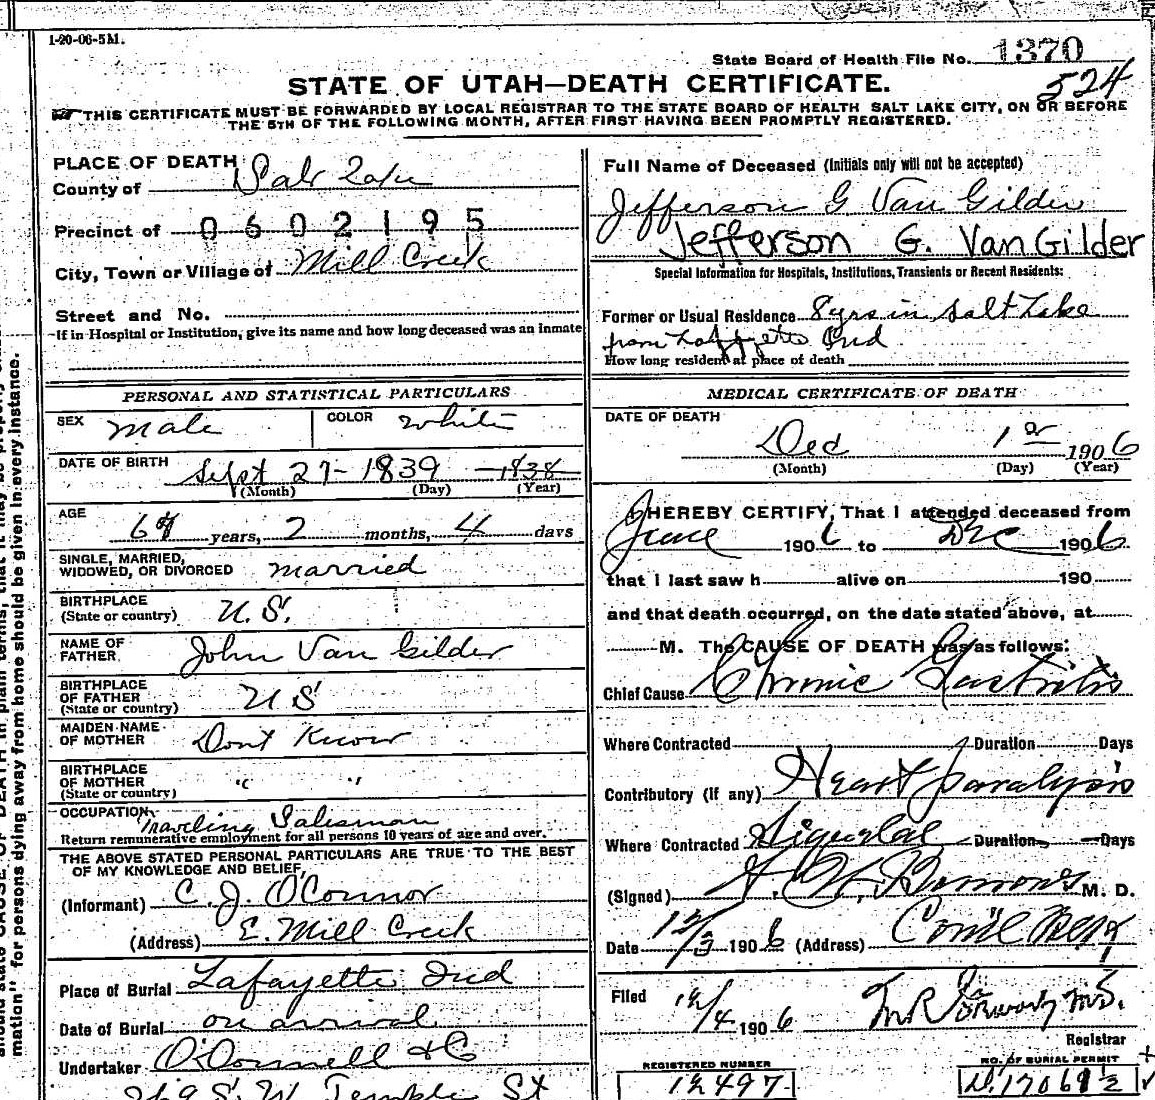 1-20-06-5M.
State Board of Health File No. 1370
524
STATE OF UTAH—DEATH CERTIFICATE.
THIS CERTIFICATE MUST BE FORWARDED BY LOCAL REGISTRAR TO THE STATE BOARD OF HEALTH SALT LAKE CITY, ON OR BEFORE
THE 5TH OF THE FOLLOWING MONTH, AFTER FIRST HAVING BEEN PROMPTLY REGISTERED.
PLACE OF DEATH
County of Salt Lake
Precinct of 0602195
City, Town or Village of Mill Creek
Street and No.
If in Hospital or Institution, give its name and how long deceased was an inmate
Full Name of Deceased (Initials only will not be accepted)
Jefferson G Van Gilder
Jefferson G. VanGilder
Special Information for Hospitals, Institutions, Transients or Recent Residents:
Former or Usual Residence 8 yrs in Salt Lake
from Laffyette Ind
How long resident at place of death
PERSONAL AND STATISTICAL PARTICULARS
SEX Male COLOR White
DATE OF BIRTH Sept 27- 1839 1838
(Month) (Day) (Year)
AGE 67 years, 2 months, 4 days
SINGLE, MARRIED,
WIDOWED, OR DIVORCED married
BIRTHPLACE
(State or country) U.S.
NAME OF
FATHER John Van Gilder
BIRTHPLACE
OF FATHER
(State or country) U S
MAIDEN NAME
OF MOTHER Dont Know
BIRTHPLACE
OF MOTHER
(State or country) " "
OCCUPATION Traveling Salesman
Return remunerative employment for all persons 10 years of age and over.
THE ABOVE STATED PERSONAL PARTICULARS ARE TRUE TO THE BEST
OF MY KNOWLEDGE AND BELIEF,
(Informant) C. J. O'Connor
(Address) E. Mill Creek
Place of Burial Lafayette Ind
Date of Burial on arrival
Undertaker O'Donnell & Co
269 S. W. Temple St
MEDICAL CERTIFICATE OF DEATH
DATE OF DEATH
Dec 1 1906
(Month) (Day) (Year)
I HEREBY CERTIFY, That I attended deceased from
June 1906 to Dec 1906
that I last saw h alive on 190
and that death occurred, on the date stated above, at
M. The CAUSE OF DEATH was as follows:
Chief Cause Chronic Gastritis
Where Contracted Duration Days
Contributory (if any) Heart paralysis
Where Contracted Duration Days
(Signed) M. D.
Date 12/3 1906 (Address) Com'l Blk
Filed 12/4 1906
Registrar
REGISTERED NUMBER
12497
NO. OF BURIAL PERMIT
17069½
mation" for persons dying away from home should be given in every instance.